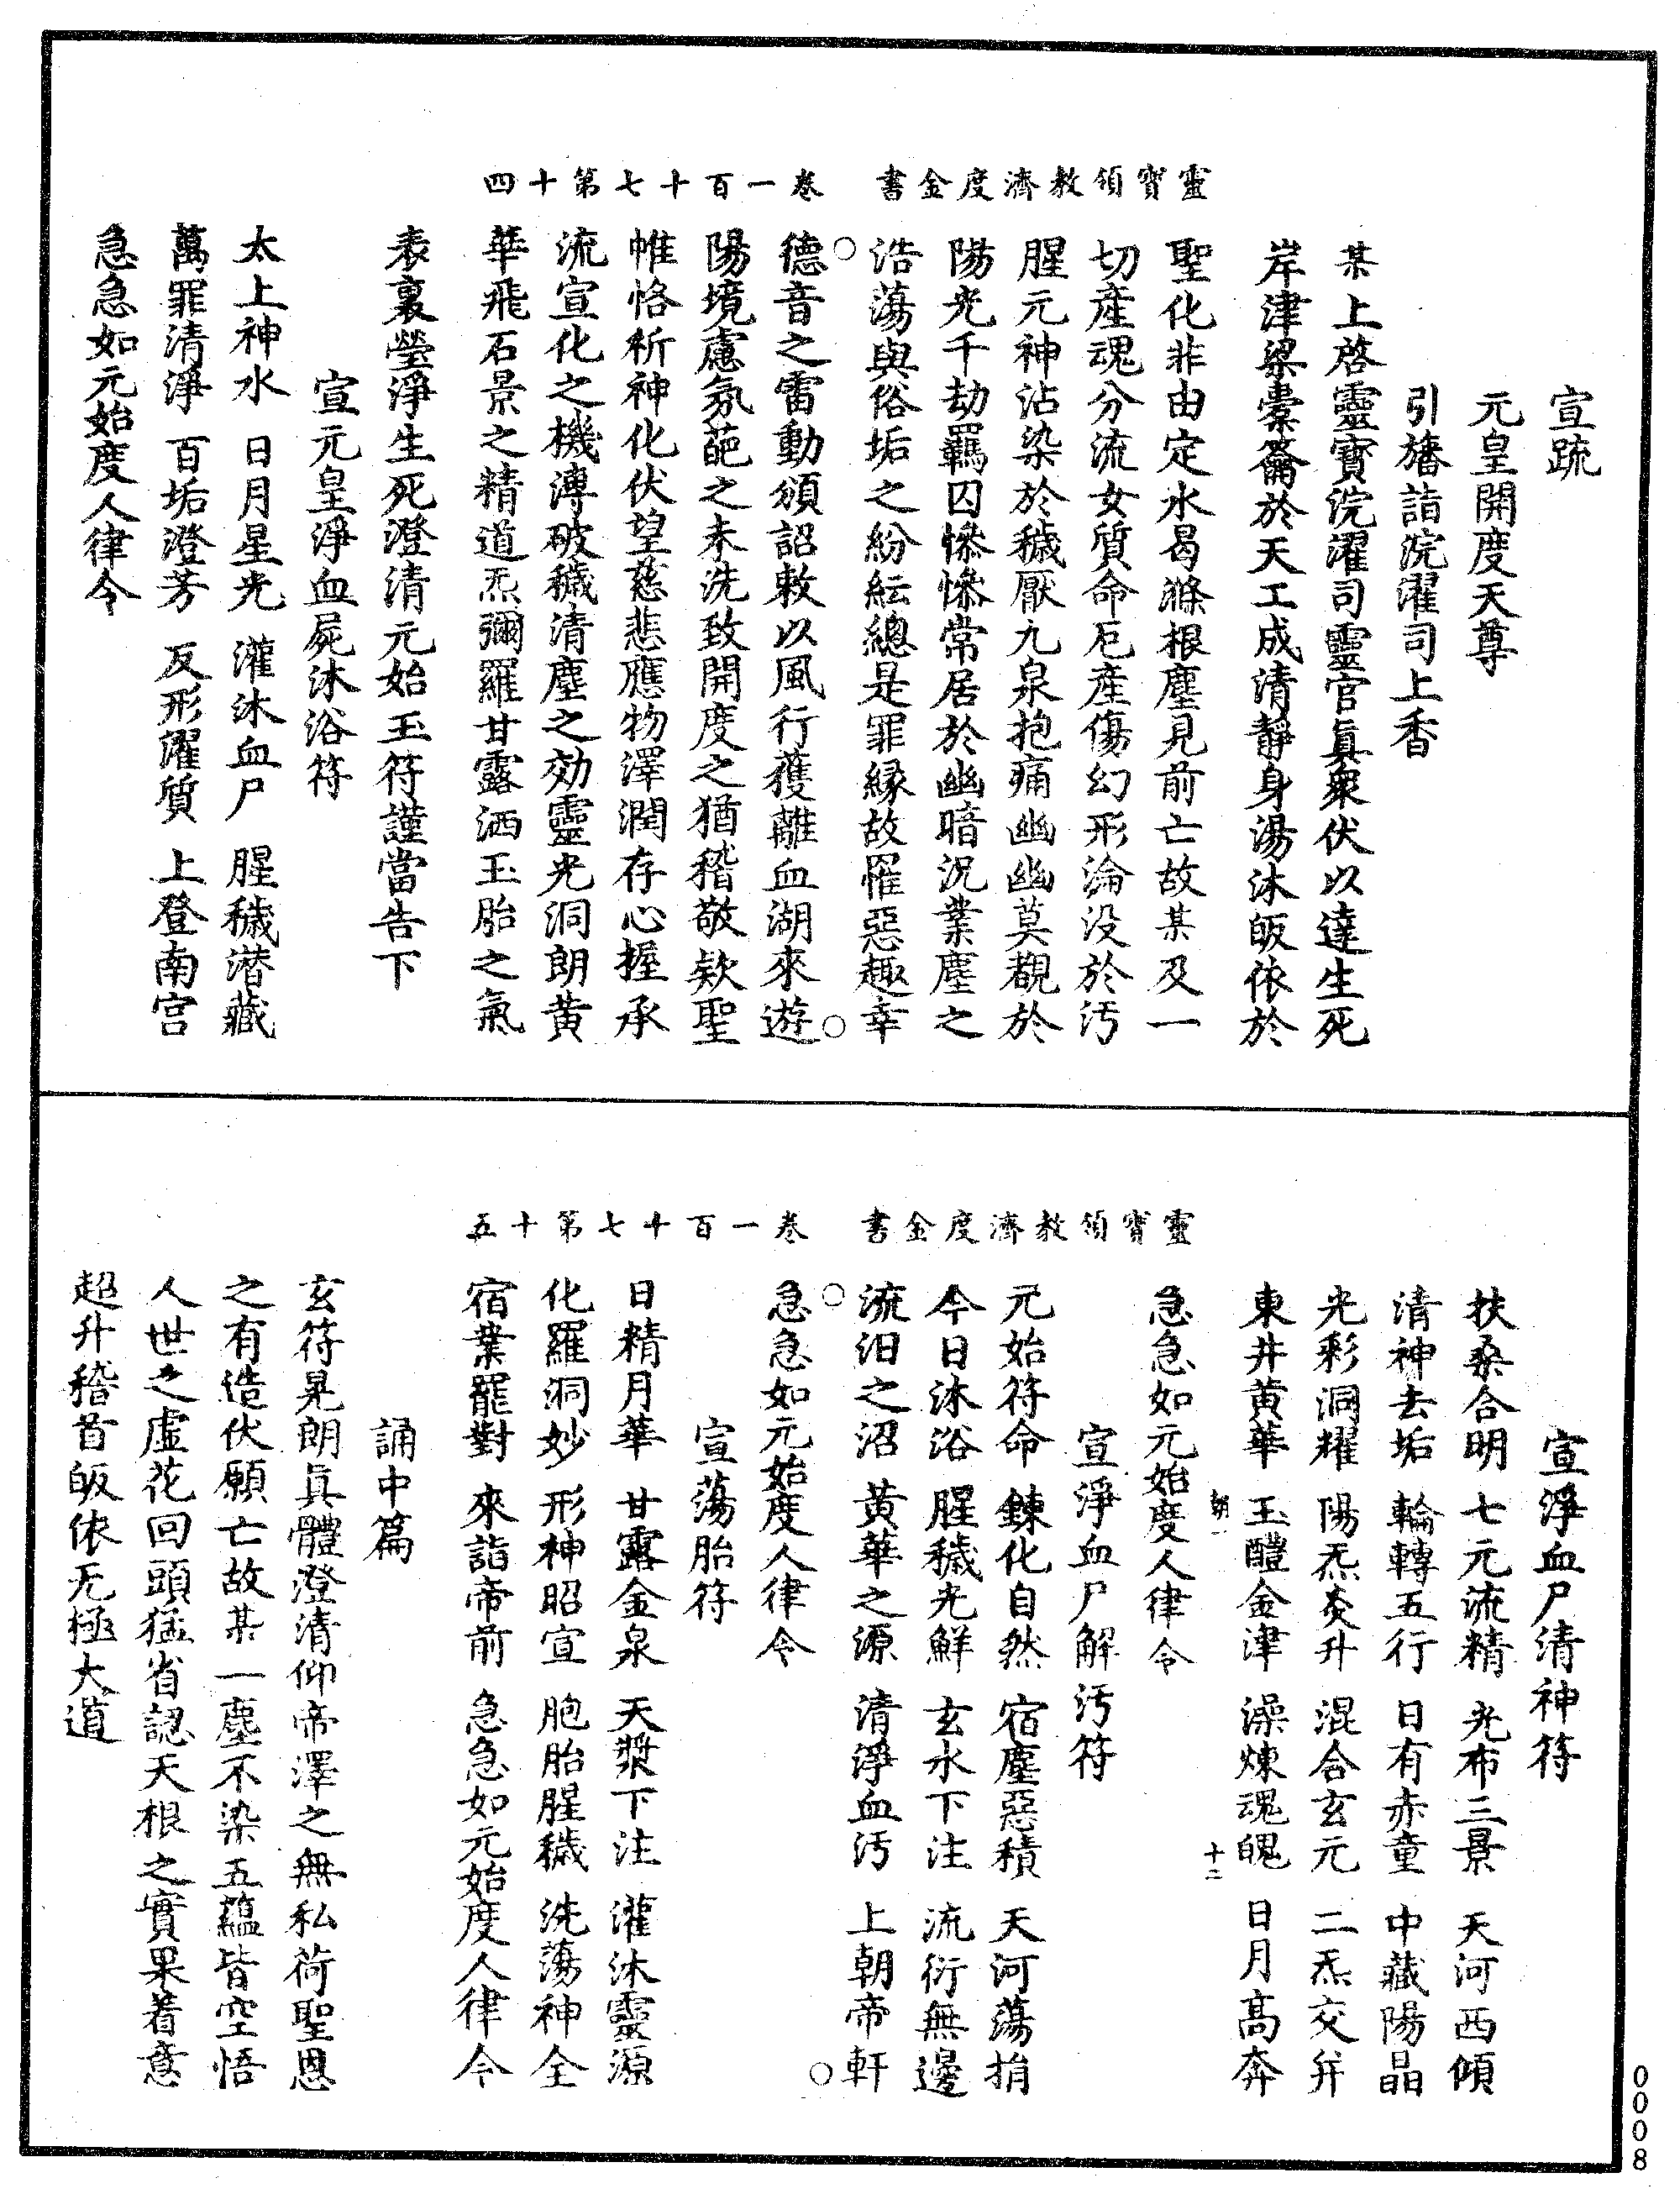 靈寶領教濟度金書　卷一百十七第十四
宣疏
元皇開度天尊
引旛詣浣濯司上香
某上啓靈寶浣濯司靈官眞衆伏以達生死
岸津梁橐籥於天工成清靜身湯沐皈依於
聖化非由定水曷滌根塵見前亡故某及一
切產魂分流女質命厄產傷幻形淪没於汚
腥元神沾染於穢厭九泉抱痛幽幽莫覩於
陽光千劫羈囚慘慘常居於幽暗況業塵之
浩蕩與俗垢之紛紜總是罪緣故罹惡趣幸
德音之雷動頒詔敕以風行獲離血湖來遊
陽境慮氛葩之未洗致開度之猶稽敬欵聖
帷恪祈神化伏望慈悲應物澤潤存心握承
流宣化之機溥破穢清塵之効靈光洞朗黃
華飛石景之精道炁彌羅甘露洒玉胎之氣
表裏瑩淨生死澄清元始玉符謹當告下
宣元皇淨血屍沐浴符
太上神水　日月星光　灌沐血尸　腥穢潜藏
萬罪清淨　百垢澄芳　反形濯質　上登南宮
急急如元始度人律令
靈寶領教濟度金書　卷一百十七第十五
宣淨血尸清神符
扶桑合明　七元流精　光布三景　天河西傾
清神去垢　輪轉五行　日有赤童　中藏陽晶
光彩洞耀　陽炁炎升　混合玄元　二炁交并
東井黃華　玉醴金津　澡煉魂魄　日月高奔
朝一　十二
急急如元始度人律令
宣淨血尸解汚符
元始符命　鍊化自然　宿塵惡積　天河蕩捐
今日沐浴　腥穢光鮮　玄水下注　流衍無邊
流汨之沼　黃華之源　清淨血汚　上朝帝軒
急急如元始度人律令
宣蕩胎符
日精月華　甘露金泉　天漿下注　灌沐靈源
化羅洞妙　形神昭宣　胞胎腥穢　洗蕩神全
宿業罷對　來詣帝前　急急如元始度人律令
誦中篇
玄符晃朗眞體澄清仰帝澤之無私荷聖恩
之有造伏願亡故某一塵不染五蘊皆空悟
人世之虛花回頭猛省認天根之實果着意
超升稽首皈依无極大道
0008